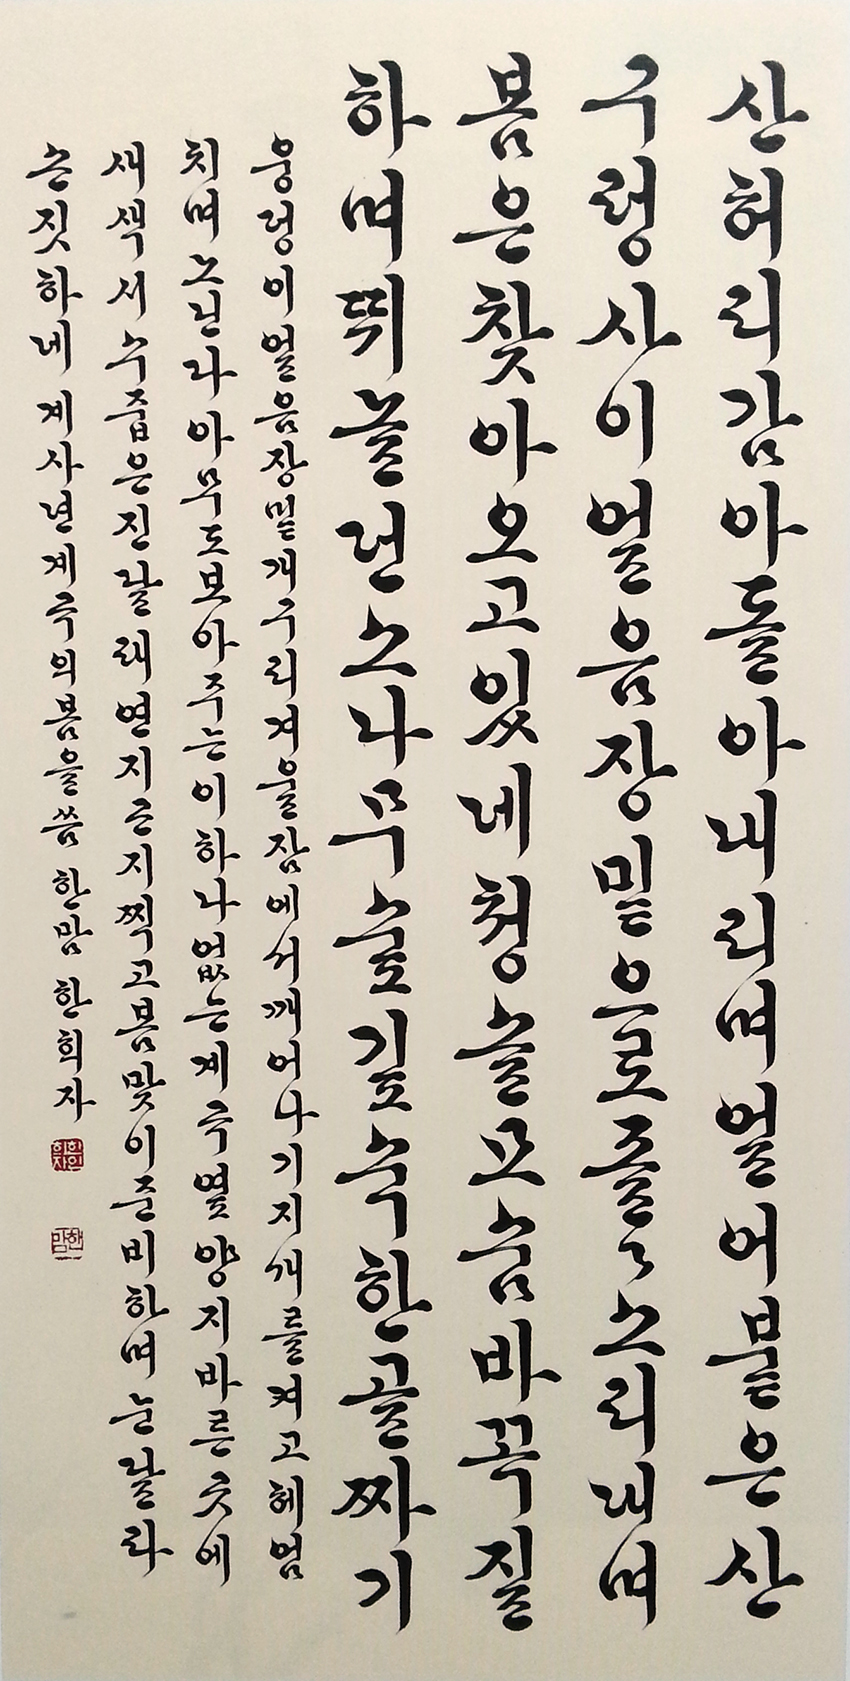 산허리감아돌아내리며얼어붙은산
구렁사이얼음장밑으로졸〻소리내며
봄은찾아오고있네청솔모숨바꼭질
하며뛰놀던소나무숲깊숙한골짜기
웅덩이얼음장밑개구리겨울잠에서깨어나기지개를켜고헤엄
치며노닌다아무도보아주는이하나없는계곡옆양지바른곳에
새색시수줍은진달래연지곤지찍고봄맞이준비하며눈날라
손짓하네 계사년계곡의봄을씀 한맘 한희자
한맘